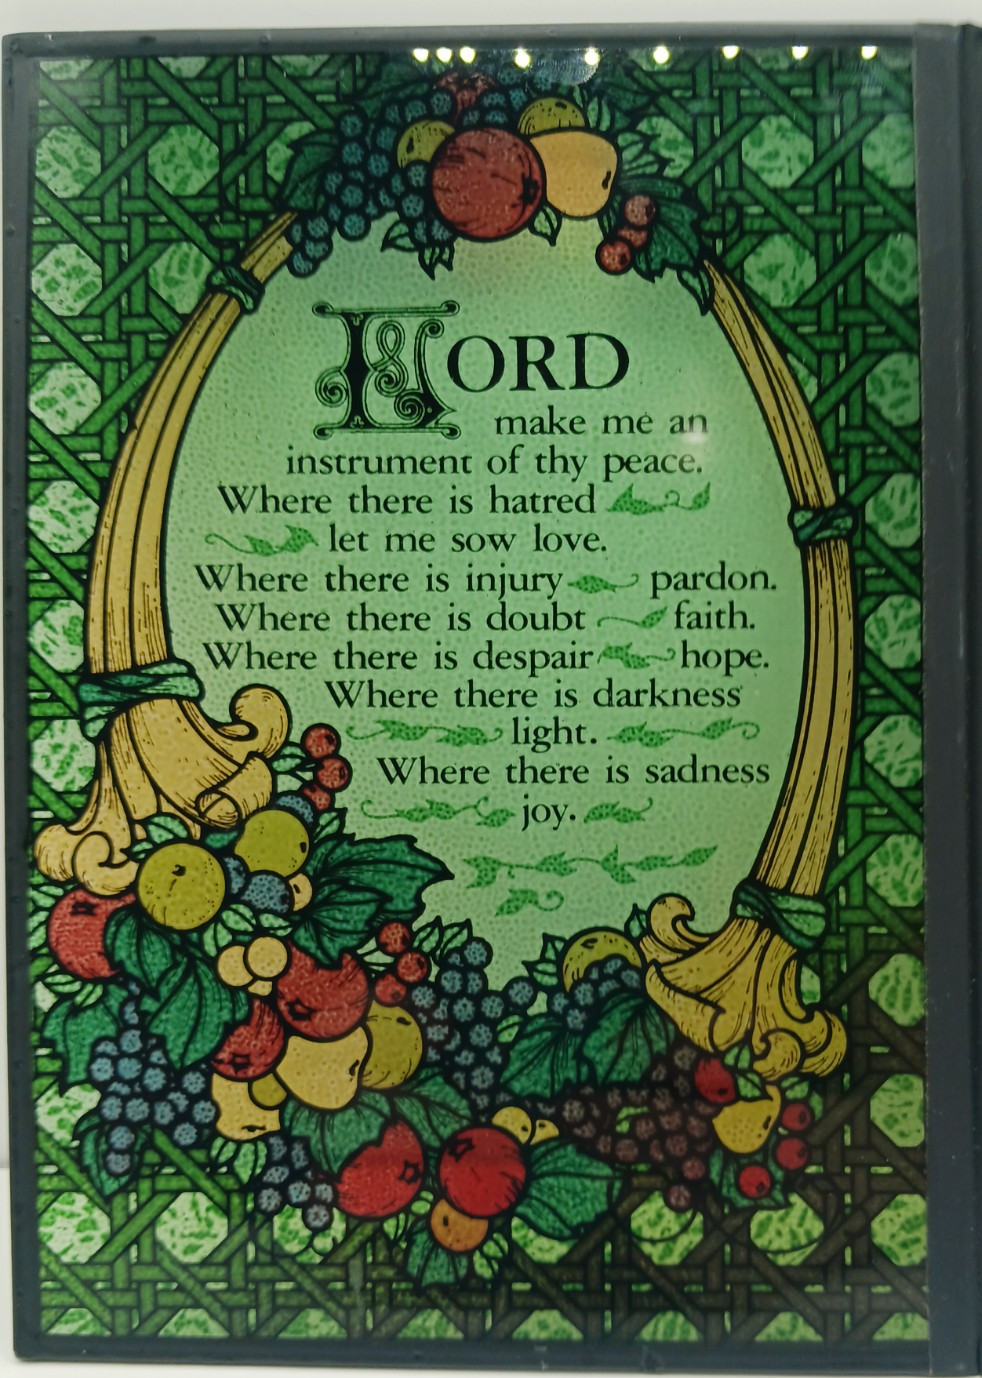 LORD
make me an
instrument of thy peace.
Where there is hatred
let me sow love.
Where there is injury pardon.
Where there is doubt faith.
Where there is despair hope.
Where there is darkness
light.
Where there is sadness
joy.